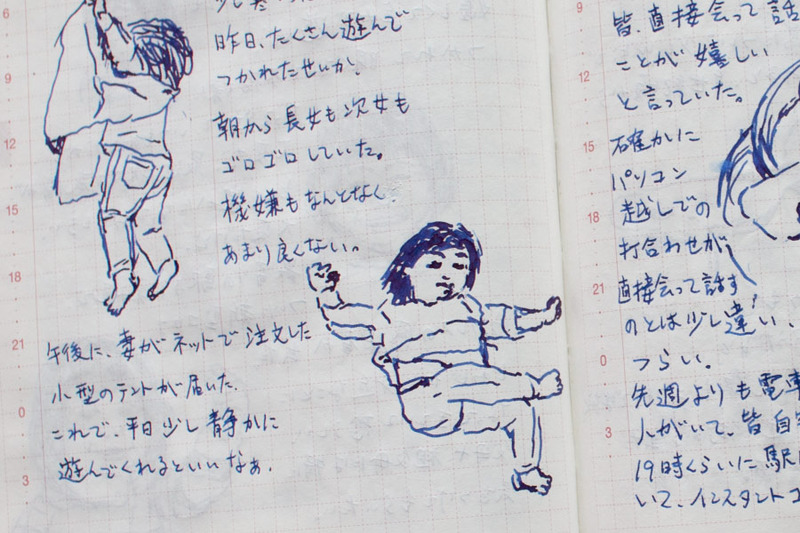 6
9
12
15
18
21
0
3
昨日、たくさん遊んで
つかれたせいか、
朝から長女も次女も
ゴロゴロしていた。
機嫌もなんとなく、
あまり良くない。
午後に、妻がネットで注文した
小型のテントが届いた。
これで、平日少し静かに
遊んでくれるといいなぁ。
9
12
15
18
21
0
3
皆、直接会って話
ことが嬉しい
と言っていた。
確かに
パソコン
越しでの
打合わせが
直接会って話す
のとは少し違い、
つらい。
先週よりも電車
人がいて、皆自
19時くらいに駅
いて、インスタントコ